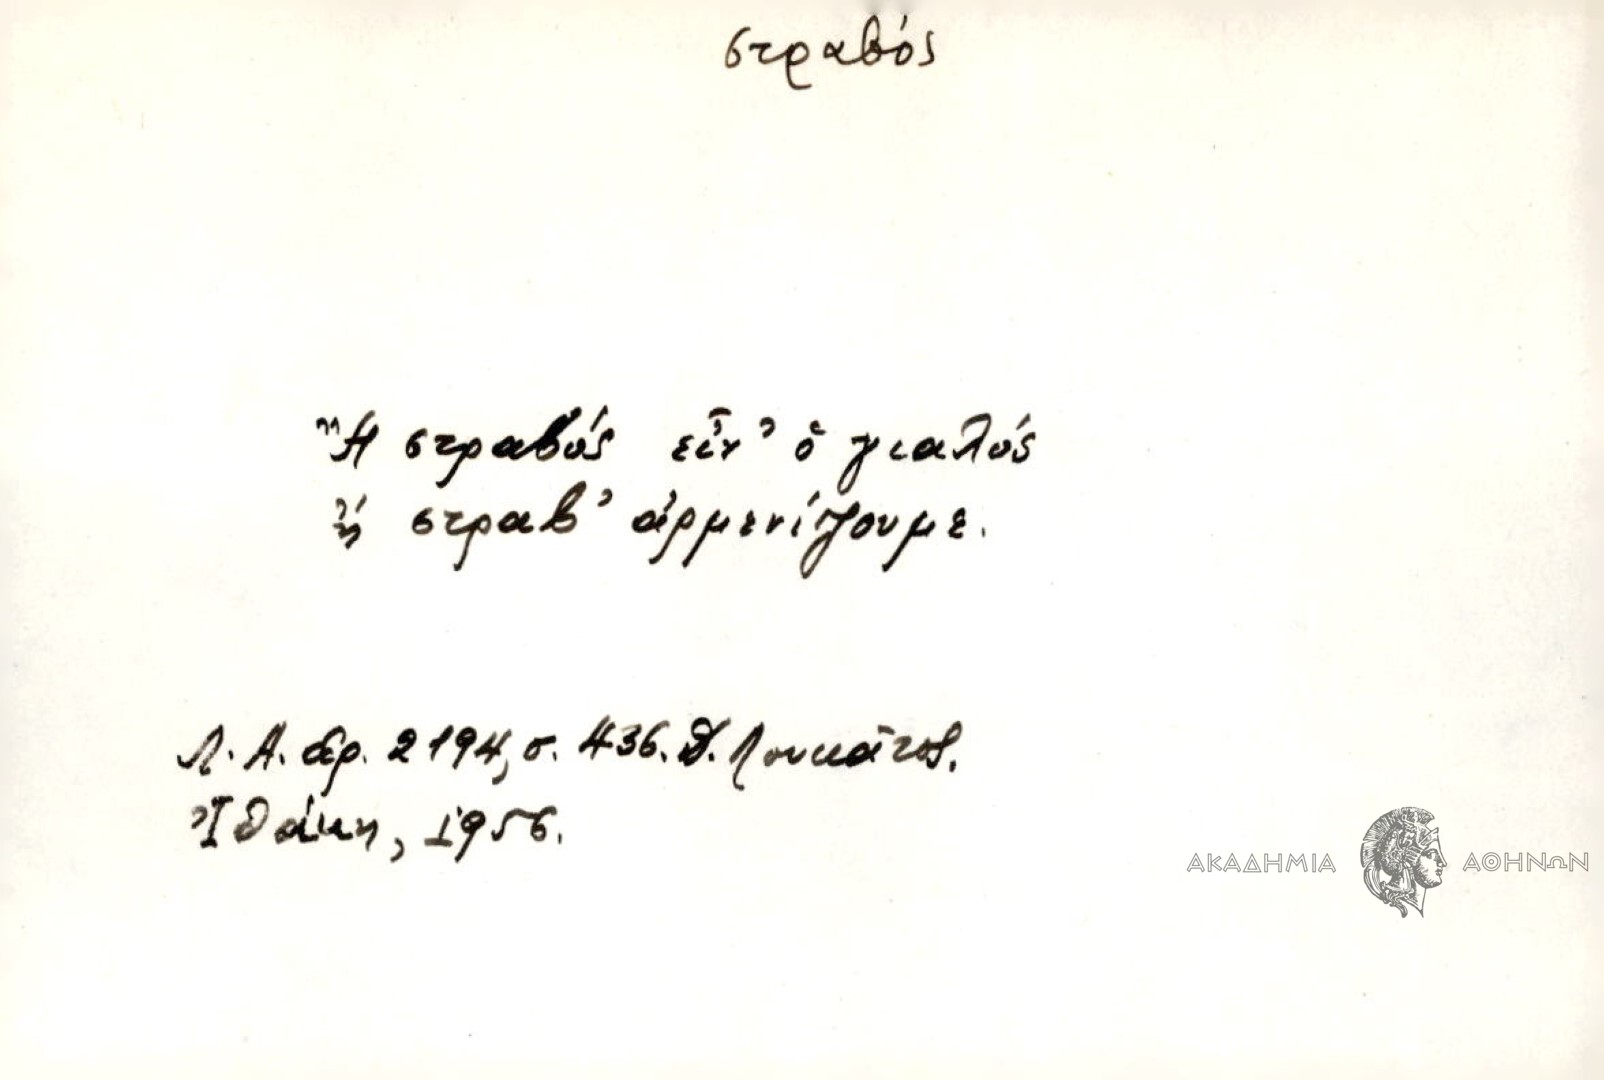 στραβός
Ἤ στραβός εἶν' ὁ γιαλός
ἤ στραβ' ἀρμενίζουμε.
Λ. Α. ἀρ. 2194, σ. 436. Δ. Λουκᾶτος.
Ἰθάκη, 1956.
ΑΚΑΔΗΜΙΑ ΑΘΗΝΩΝ